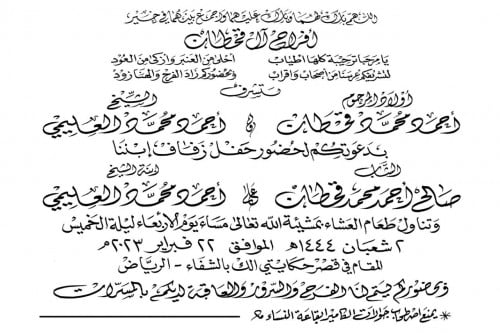 اللهم بارك لهما وبارك عليهما واجمع بينهما في خير
أفراح آل قحطان
يا مرحبا ترحيبة كلها أطياب أحلى من العنبر وأزكى من العود
لمشرفيكم عرسنا من أصحاب وأقراب وحضوركم زاد الفرح والهنا زود
وتتشرف
أولاد المرحوم الشيخ
أحمد محمد قحطان و أحمد محمد العليمي
بدعوتكم لحضور حفل زفاف إبننا
الشاب ابنة الشيخ
صالح أحمد محمد قحطان على أحمد محمد العليمي
وتناول طعام العشاء بمشيئة الله تعالى مساء يوم الأربعاء ليلة الخميس
٢ شعبان ١٤٤٤هـ الموافق ٢٢ فبراير ٢٠٢٣م
المقام في قصر حكايتي الك بالشفاء - الرياض
وبحضوركم يتم لنا الفرح والسرور والعاقبة لديكم بالمسرات
* يمنع اصطحاب جوالات الكامير القاعة النساء